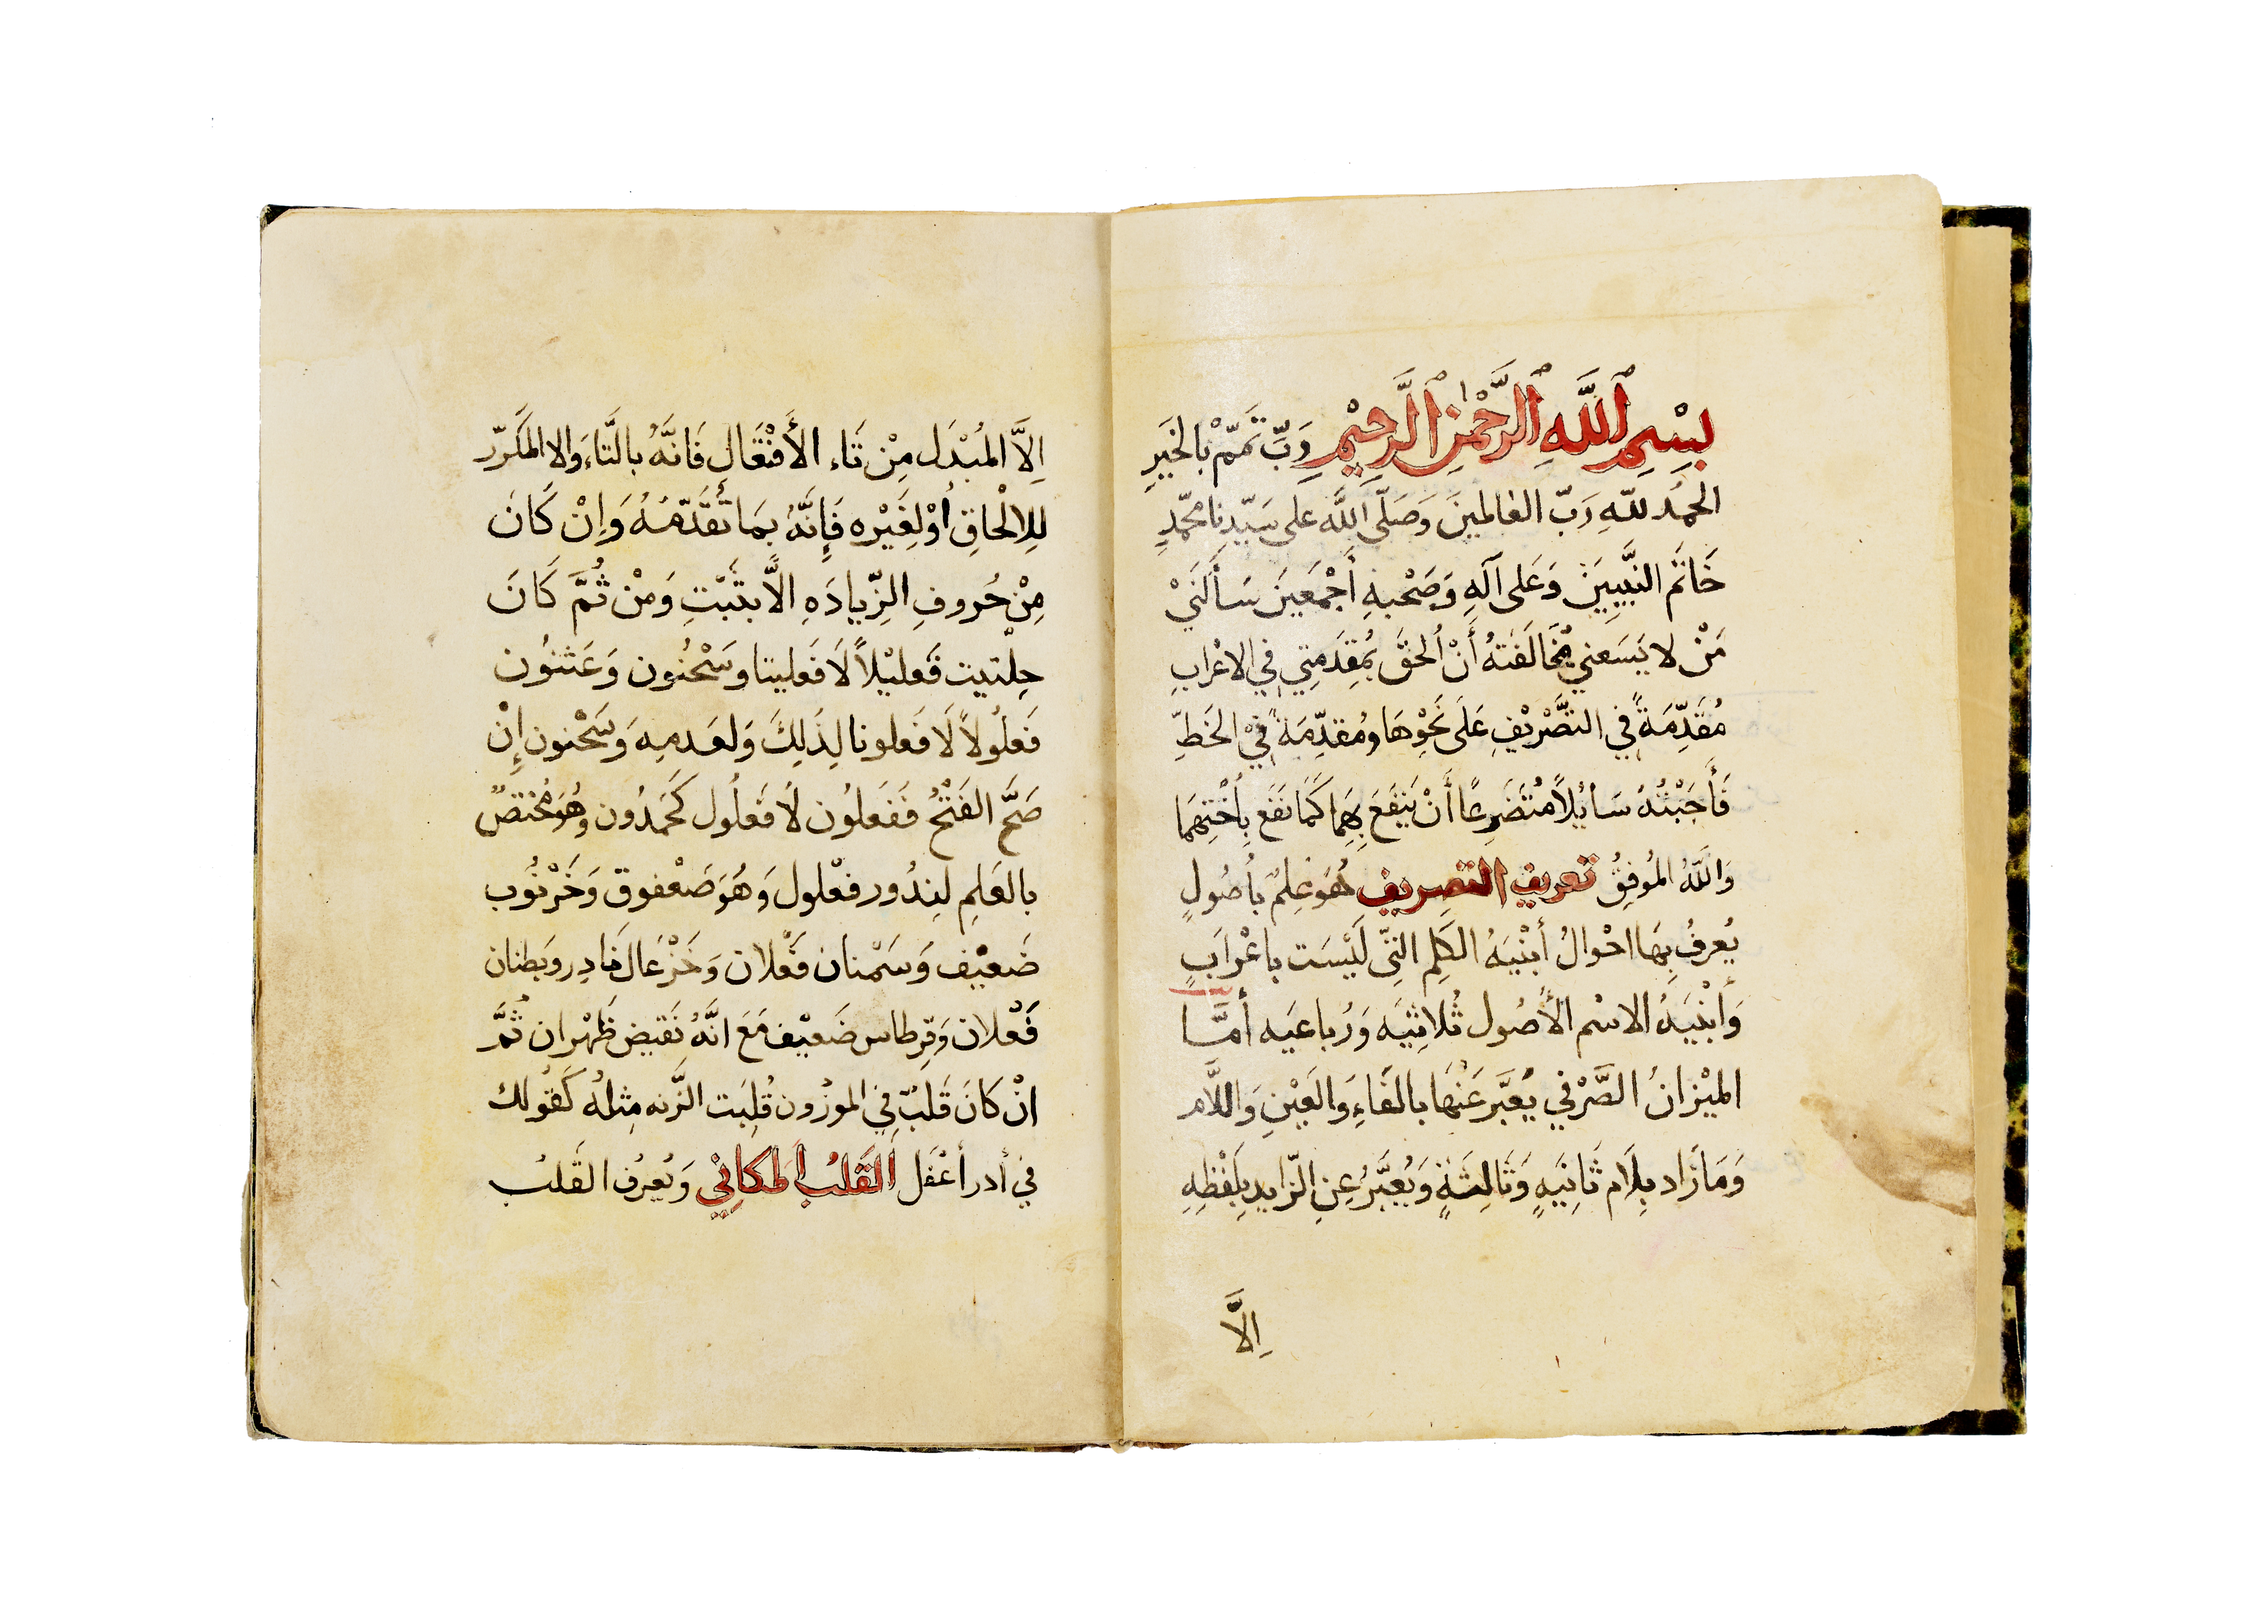 بِسْمِ ٱللَّهِ ٱلرَّحْمٰنِ ٱلرَّحِيْمِ وَبِّ تَمِّمْ بالخَيرِ
الحمُد للّهِ رَبّ العٰالمينَ وَصَلّى اللَّه على سَيّدِنا محمّدٍ
خَاتَم النبَّيِيَنْ وَعَلى آلَهِ وَصَحْبهِ أَجْمَعينَ سَأَلَنيْ
مَنْ لا يَسَعني مُخَالَفَتهُ أَنْ اُلحقَّ بمُقِدَمِتي في الاعْرابِ
مُقَدِّمَةً في التصَّرْيْفِ عَلَى نَحْوِهَا ومُقدِّمَة في الخَطِّ
فَأَجَبْتُهُ سَائِلاً مُتضَرِعًا أَنْ يَنفَعَ بِهِمَا كَمَا نَفَع بِأُخْتِهِمَا
وَاللَّهُ المُوفِقُ تعريف التصريف هُوَ عِلمٌ بأصُولٍ
يُعرفُ بِهَا احْوالُ أبْنْيَهُ الكَلِم التيّ لَيْسَت باعْرابٍ
وَأَبْنْيَهُ الاسْم الأصُول ثُلاثيَه وَرُباعيَه أمَّا
الميْزانُ الصَّرْفي يُعَبَّر عَنْهَا بالفَاءَ وَالعَيْنِ وَاللاَّم
وَمَا زَاد بِلَام ثَانِيَهٍ وَثَالِثَةٍ وَيُعَبَّرُ عِنِ الزّايدِ بِلَفْظِهِ
اِلاَّ
اِلاَّ المُبْدَل مِنْ تَاء الأَفْتَعَالِ فَانَّهُ بالتَّاءَ وَالا المَكرّر
لِلِالْحاقِ أوْ لِغَيْرِه فَإِنَّهُ بمَا تَقَدَّمَهُ وَإِنْ كَانَ
مِنْ حُروفِ الزِّيادَهِ الاَّ بثَبْتِ وَمْن ثُمَّ كَانَ
حِلْتيت فَعليْلاً لَا فَعليتا وسَحْنُون وَعَثنوُن
فَعلُولاً لَا فَعلونا لِذَلِكَ وَلعَدمِه وَسَحْنون إِنْ
صَحَّ الفَتْحُ فَفَعلوُن لَا فَعلُول كَحَمدُون وهُوَ مُختصٌ
بالعَلمِ لنِدُور فعْلول وَهُوَ صَعْفوق وَخَرْنوُب
ضَعيْف وَسَمْنان فَعْلان وَخَزْعَال نَادِر وَبطنان
فَعْلان وَقِرطاس ضَعيْف مَعَ انَّهُ نَقيض ظَهْران ثُمَّ
انْ كَانَ قَلبٌ فِي الموزُون قُلِبَت الزَّنه مِثلهُ كَقوُلك
في أدر أعْفَل اَلقَلبُ اَلمكانِي وَيُعرفُ القَلبُ